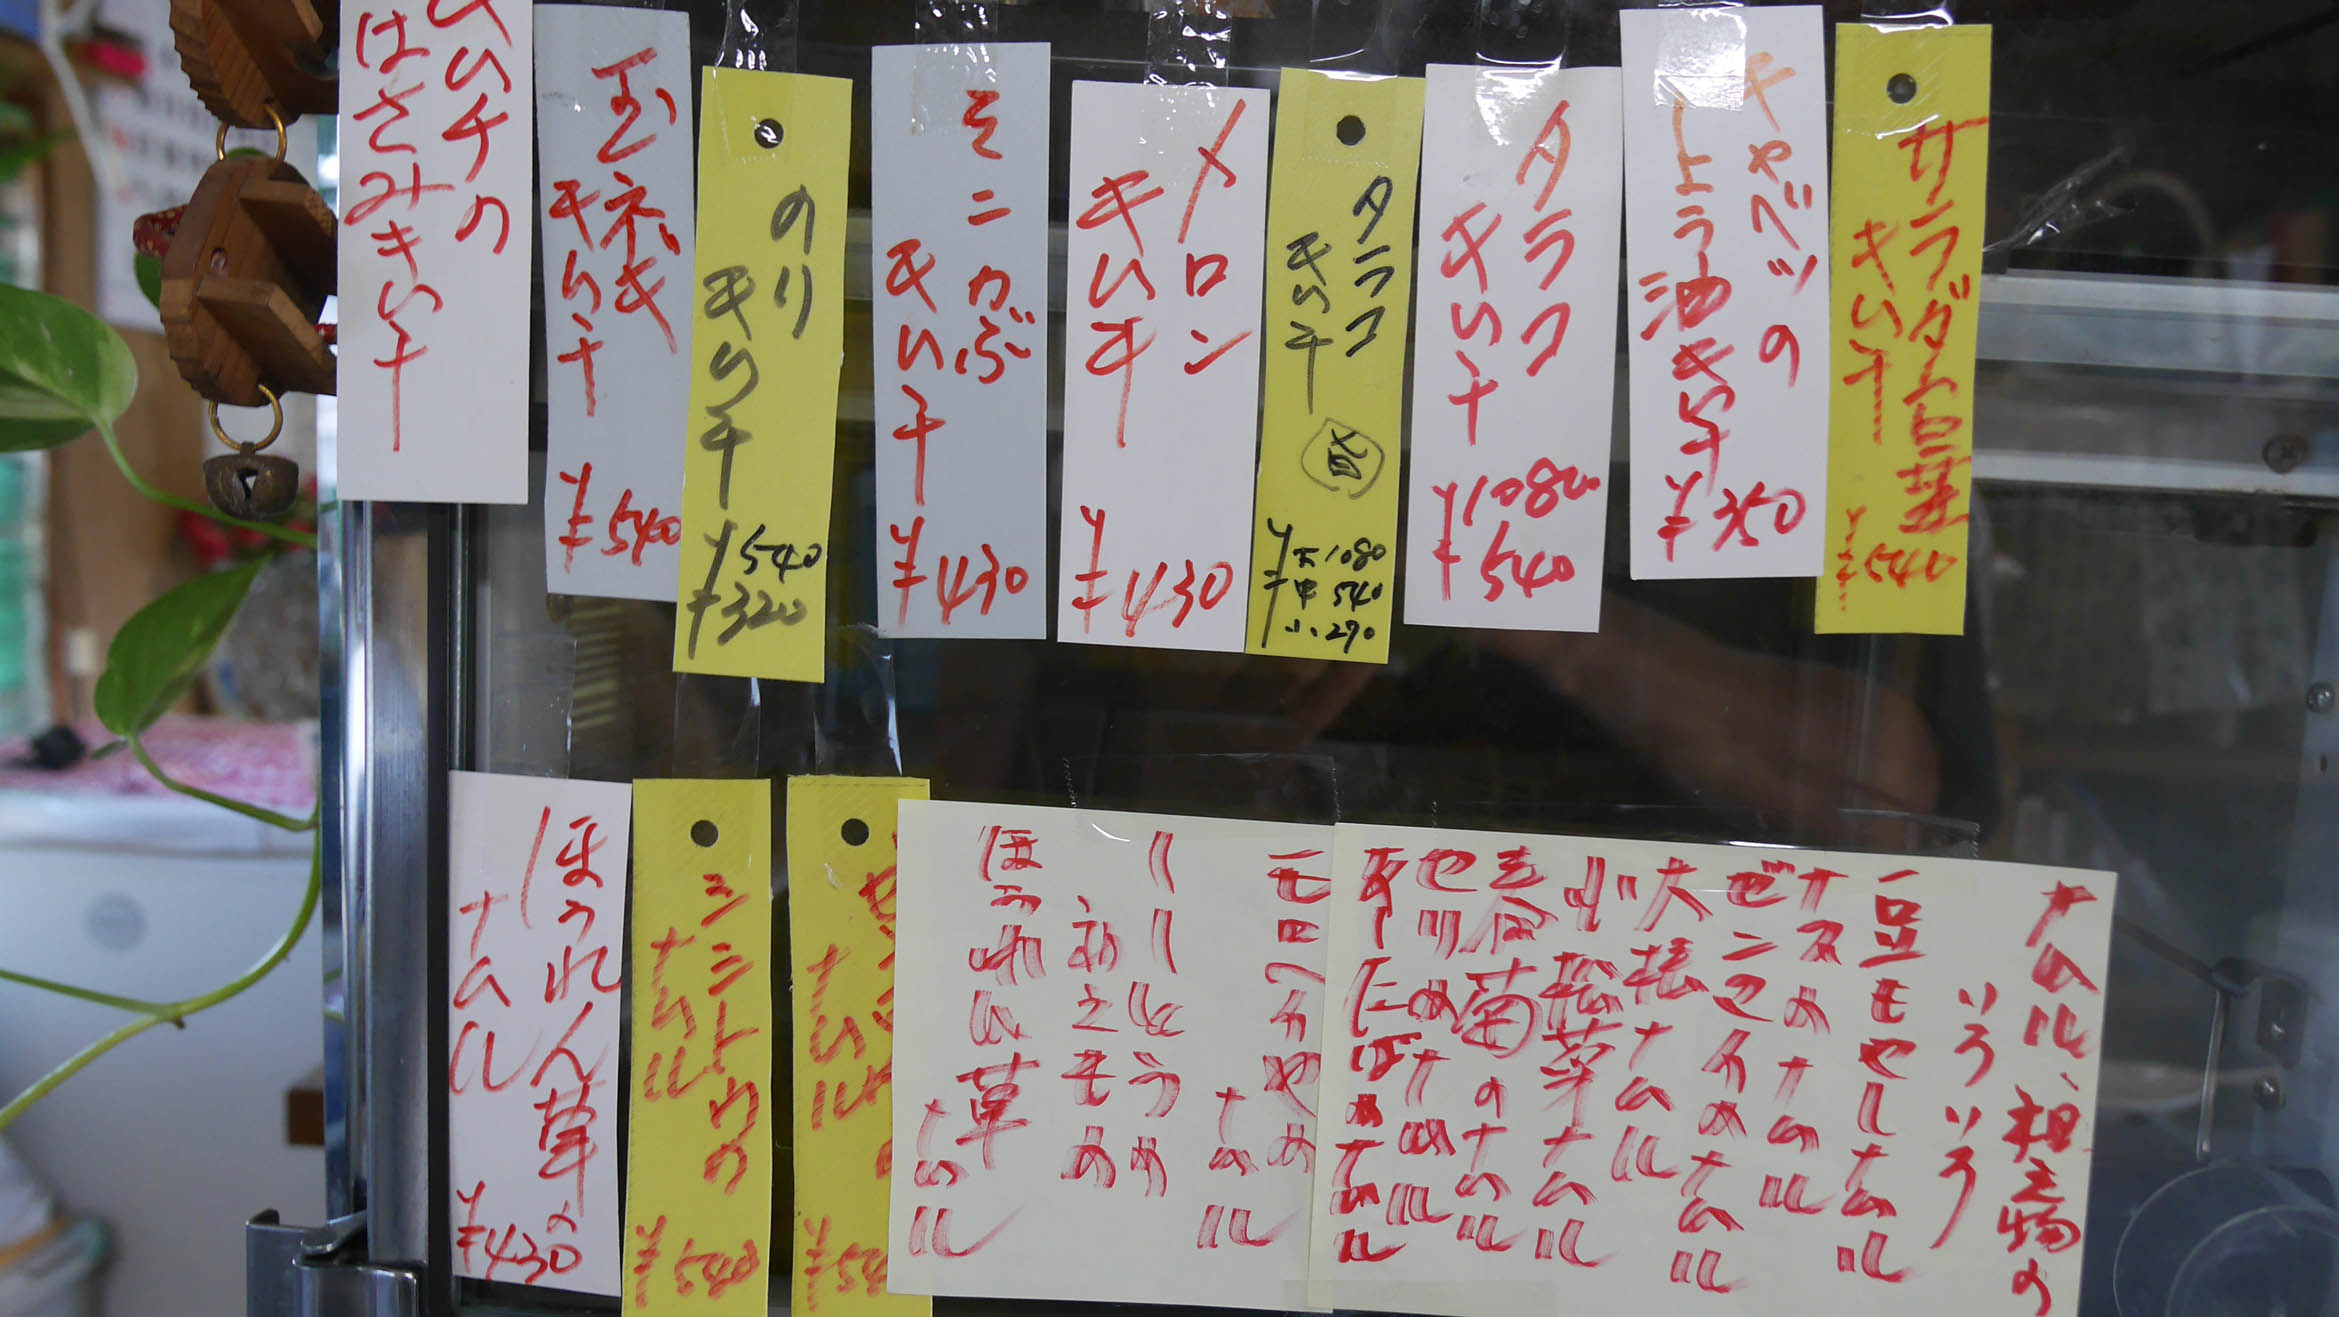 サラダ白菜
キムチ
¥540
キャベツの
トトラー油キムチ
¥350
タラコ
キムチ
¥1080
¥540
タラコ
キムチ
¥大1080
中540
小270
メロン
キムチ
¥430
ミニかぶ
キムチ
¥430
のり
キムチ
¥540
¥320
玉ネギ
キムチ
¥540
キムチの
はさみキムチ
ナムル、和え物の
いろいろ
豆もやしナムル
ナスのナムル
ゼンマイのナムル
大根ナムル
小松菜ナムル
春菊のナムル
セリのナムル
モロヘイヤの
ナムル
ほうれん草
ナムル
シシトウの
ナムル
¥540
ほうれん草の
ナムル
¥430